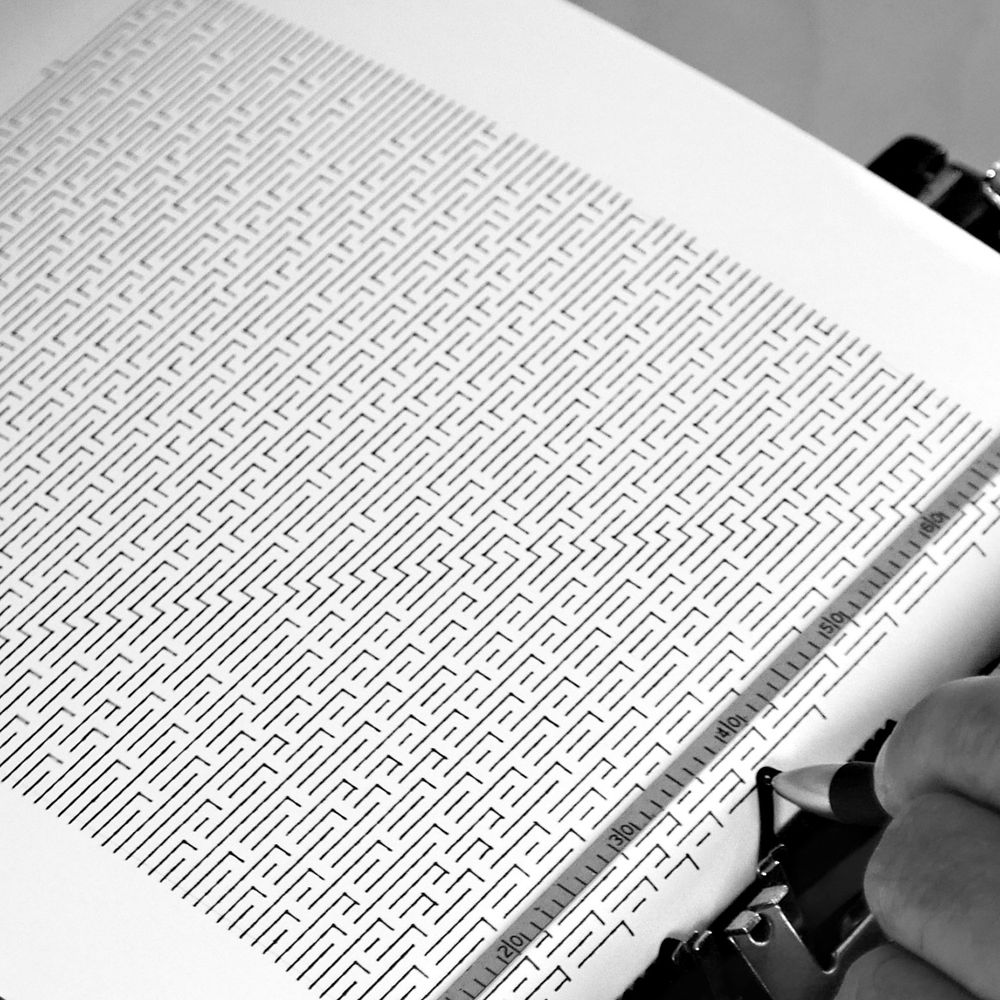 2|0 3|0 4|0 5|0 6|0